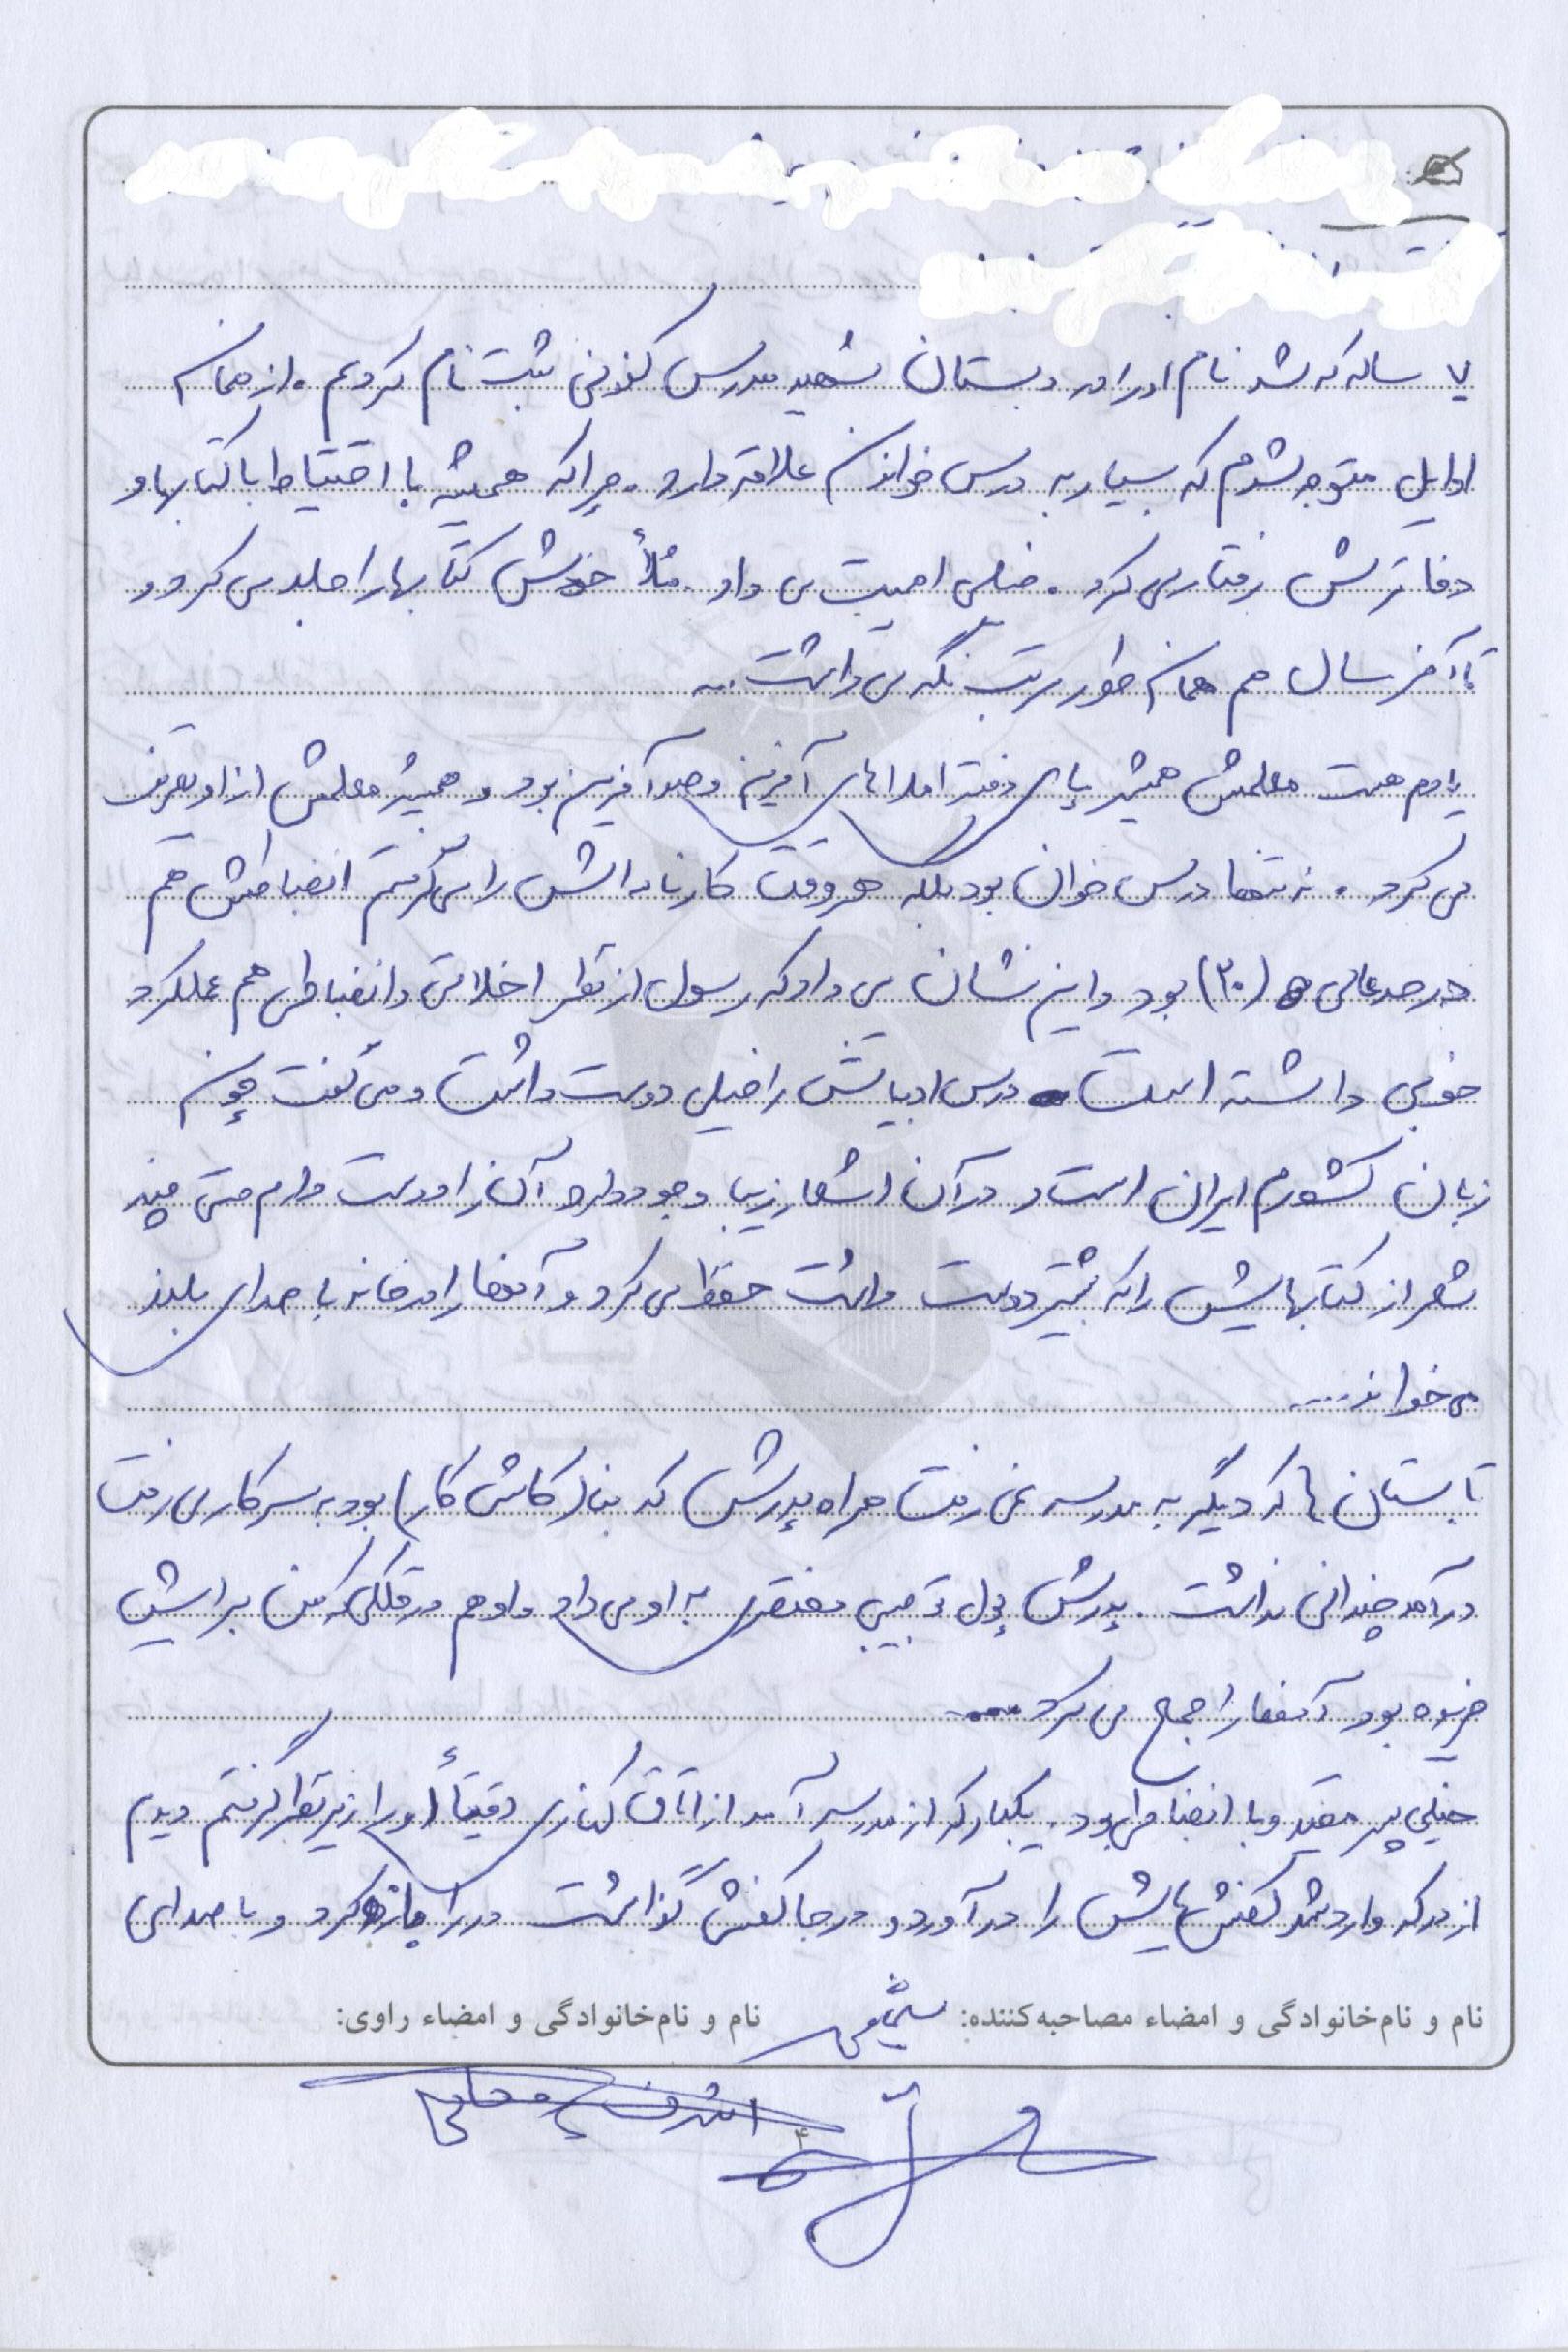 ۷ ساله که شد نام او را در دبستان شهید مدرس کنونی ثبت نام کردیم. از همان
اوایل متوجه شدم که بسیار به درس خواندن علاقه دارد. چرا که همیشه با احتیاط با کتابها و
دفاترش رفتار می کرد. خیلی اهمیت می داد. مثلاً خودش کتابها را جلد می کرد و
تا آخر سال هم همان طور مرتب نگه می داشت...
یادم هست معلمش همیشه پای دفتر املاهای آفرین و صد آفرین بود و همیشه معلمش از او تعریف
می کرد. نه تنها درس خوان بود بلکه هر وقت کارنامه اش را می گرفتم انضباطش هم
در حد عالی (۲۰) بود و این نشان می داد که رسول از نظر اخلاقی و انضباطی هم عملکرد
خوبی داشته است درس ادبیاتش را خیلی دوست داشت و می گفت چون
زبان کشورم ایران است و در آن اشعار زیبا وجود دارد آن را دوست دارم حتی چند
شعر از کتابهایش را که بیشتر دوست داشت حفظ می کرد و آنها را در خانه با صدای بلند
می خواند....
تابستان ها که دیگر به مدرسه نمی رفت همراه پدرش که بنا (کاشی کار) بود به سر کار می رفت
درآمد چندانی نداشت. پدرش پول توجیبی مختصری به او می داد و او هم در قلکی که من برایش
خریده بود آنها را جمع می کرد....
خیلی پسر مقید و با انضباطی بود. یکبار که از مدرسه آمد از اتاق کناری دقیقاً او را زیر نظر گرفتم دیدم
از در که وارد شد کفش هایش را در آورد و در جا کفشی گذاشت در را باز کرد و با صدای
نام و نام‌خانوادگی و امضاء مصاحبه‌کننده: نام و نام‌خانوادگی و امضاء راوی:
۴